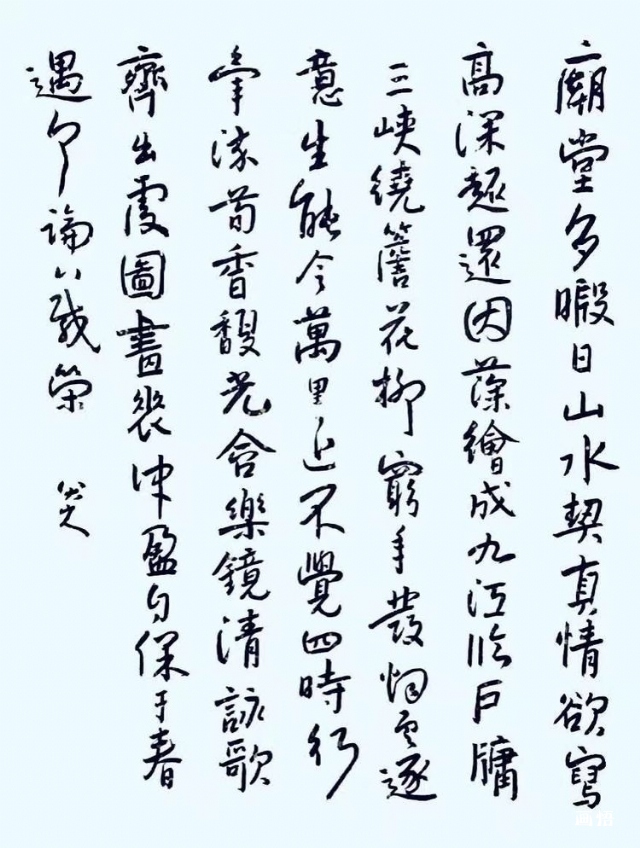 廟堂多暇日山水契真情欲寫
高深趣還因藻繪成九江臨戶牖
三峽繞簷花柳窮年發烟雲逐
意生能令萬里近不覺四時行
染荀香馥光含樂鏡清詠歌
齊出處圖畫表冲盈自保千春
遇寧論八載榮